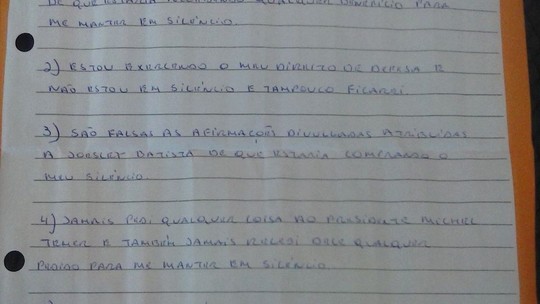 DE QUE ESTARIA RECEBENDO QUALQUER BENEFÍCIO PARA
ME MANTER EM SILÊNCIO.
2) ESTOU EXERCENDO O MEU DIREITO DE DEFESA E
NÃO ESTOU EM SILÊNCIO E TAMPOUCO FICAREI.
3) SÃO FALSAS AS AFIRMAÇÕES DIVULGADAS ATRIBUIDAS
A JOESLEY BATISTA DE QUE ESTARIA COMPRANDO O
MEU SILÊNCIO.
4) JAMAIS PEDI QUALQUER COISA AO PRESIDENTE MICHEL
TEMER E TAMBÉM JAMAIS RECEBI DELE QUALQUER
PEDIDO PARA ME MANTER EM SILÊNCIO.